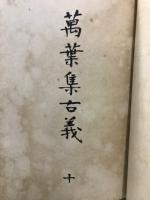 萬葉集古義
十